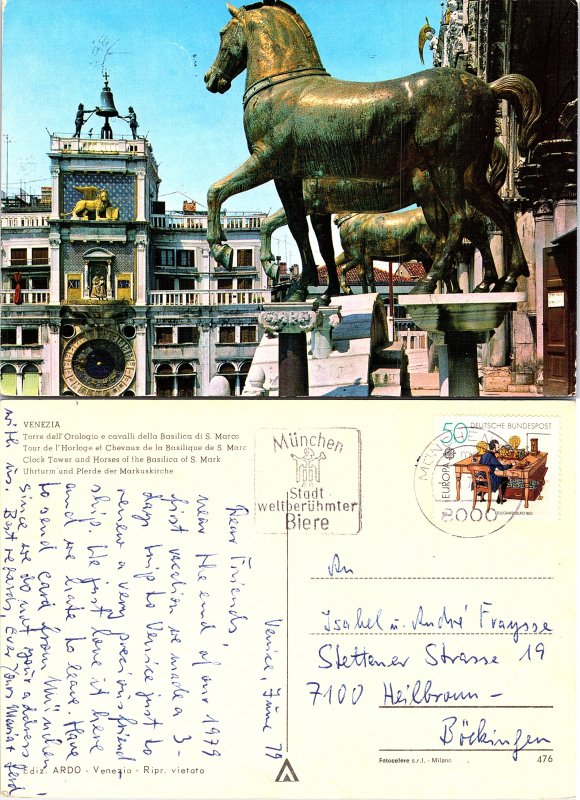 VENEZIA
Torre dell'Orologio e cavalli della Basilica di S. Marco
Tour de l'Horloge et Chevaux de la Basilique de S. Marc
Clock Tower and Horses of the Basilica of S. Mark
Uhrturm und Pferde der Markuskirche
München
Stadt
weltberühmter
Biere
50 DEUTSCHE BUNDESPOST
EUROPA
8000
Venice, June 79
Dear Friends,
near the end of our 1979
first vacation we made a 3-
days trip to Venice just to
renew a very precious friend-
ship. We just love it here
and we hate to leave. Have
to send card from München,
since we do not your address
with us. Best regards, Ever Yours
An
Isabel u. André Fraysse
Stettener Strasse 19
7100 Heilbronn-
Böckingen
Ediz. ARDO - Venezia - Ripr. vietata
Fotocelere s.r.l. - Milano
476